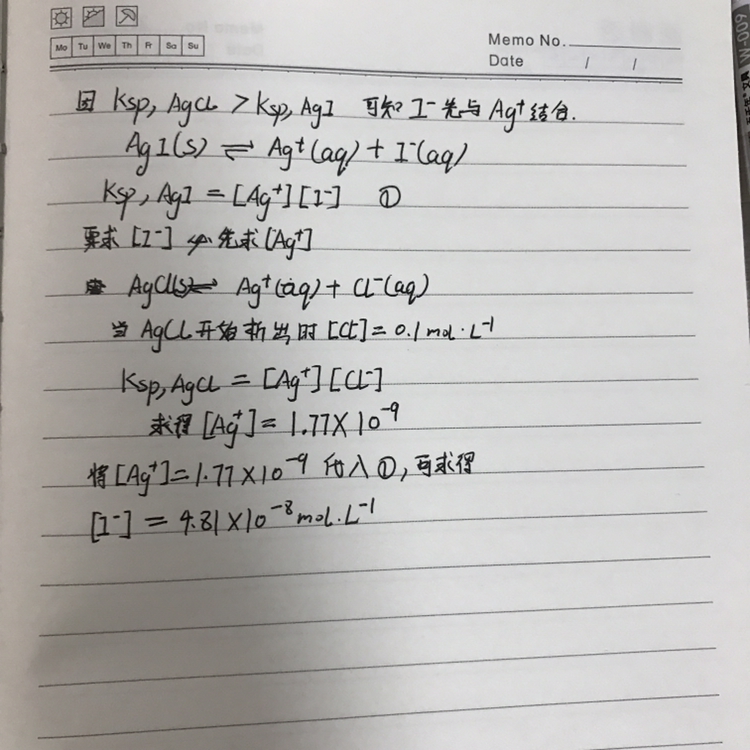 Mo Tu We Th Fr Sa Su
Memo No.
Date / /
因 Ksp, AgCl > Ksp, AgI 可知 I⁻先与 Ag⁺结合.
AgI(s) ⇌ Ag⁺(aq) + I⁻(aq)
Ksp, AgI = [Ag⁺][I⁻] ①
要求 [I⁻] 先求[Ag⁺]
AgCl(s) ⇌ Ag⁺(aq) + Cl⁻(aq)
当 AgCl 开始析出时 [Cl⁻] = 0.1 mol·L⁻¹
Ksp, AgCl = [Ag⁺][Cl⁻]
求得 [Ag⁺] = 1.77×10⁻⁹
将 [Ag⁺] = 1.77×10⁻⁹ 代入 ①, 可求得
[I⁻] = 4.81×10⁻⁸ mol·L⁻¹